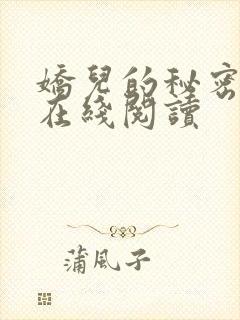 嬌兒的秘密
在綫閱讀
蒲風子